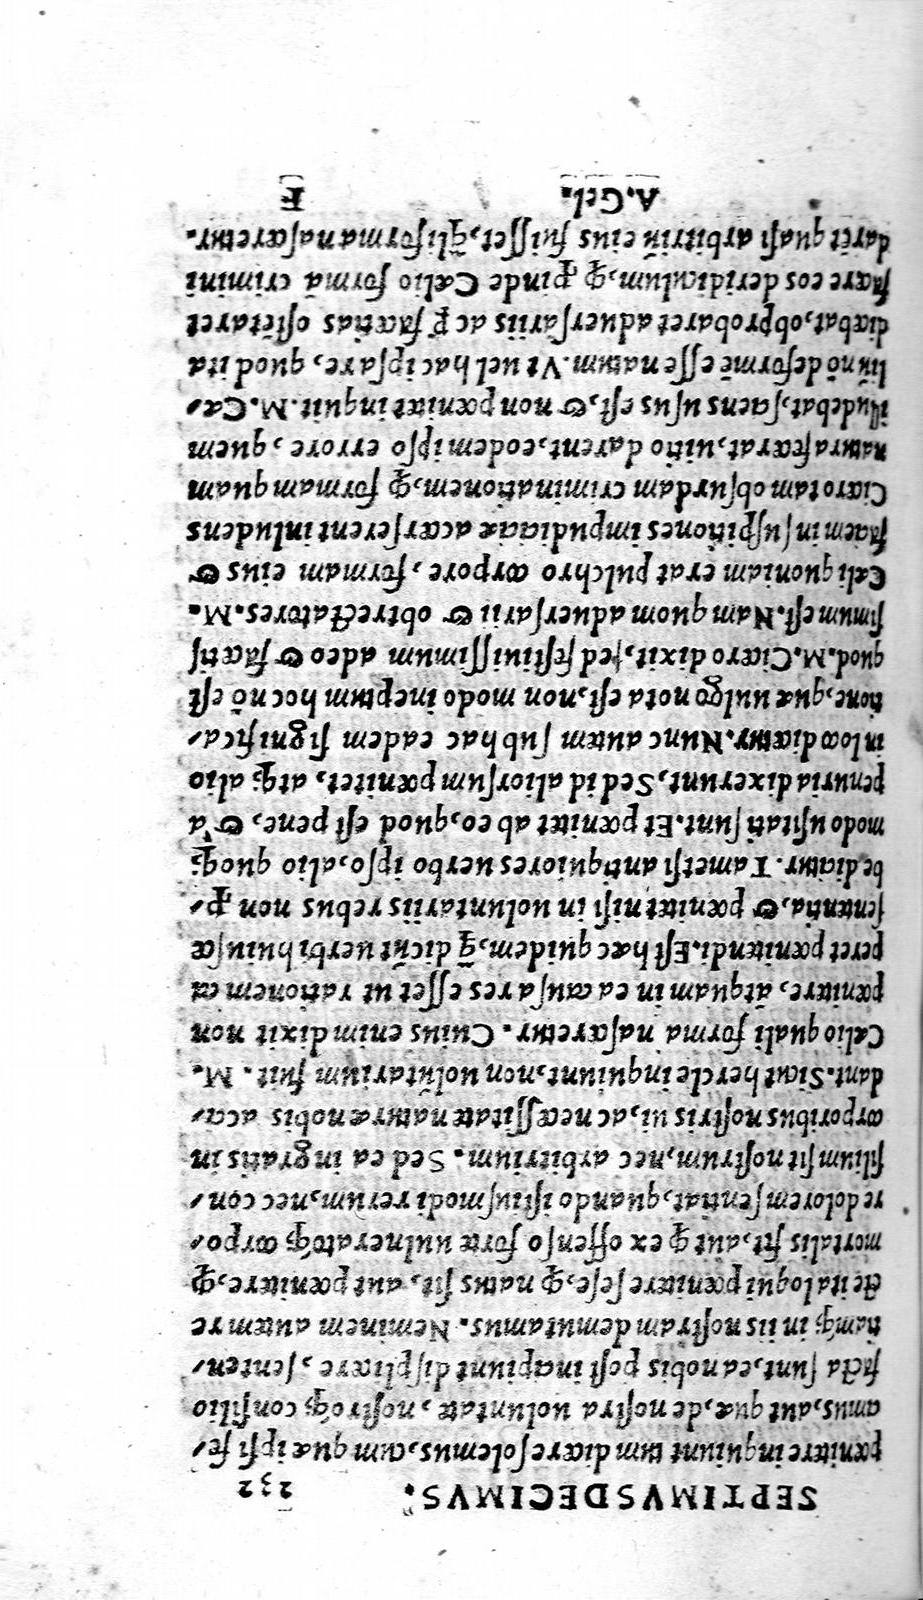 SEPTIMVSDECIMVS. 232
pœnitere inquiunt tum dicere solemus, cum quæ ipsi fe-
cimus, aut quæ, de nostra uoluntate, nostroq; consilio
facta sunt, ea nobis post incipiunt displicere, senten-
tiamq; in iis nostram demutamus. Neminem autem re
cte ita loqui pœnitere sese, ꝙ natus sit, aut, pœnitere, ꝙ
mortalis sit, aut ꝙ ex offenso forte uulneratoq; corpo-
re dolorem sentiat, quando istiusmodi rerum, nec con-
silium sit nostrum, nec arbitrium. Sed ea ingratis in
corporibus nostris ui, ac necessitate naturæ nobis acci-
dant. Sicut hercle inquiunt, non uolũtarium fuit. M.
Cælio quali forma nasceretur. Cuius enim dixit non
pœnitere, atquam in ea causa res esset ut rationem ca
peret pœnitendi. Est hæc quidem, q̃ dicũt uerbi huiusce
sententia, & pœnitet nisi in uoluntariis rebus non ꝓ-
be dicitur. Tametsi antiquiores uerbo ipso, alio quoq;
modo usitati sunt. Et pœnitet ab eo, quod est pene, & a
penuria dixerunt, Sed id aliorsum pœnitet, atq; alio
in loco dicetur. Nunc autem sub hac eadem significa-
tione, quæ uulgo nota est, non modo ineptum hoc nõ est
quod. M. Cicero dixit, sed festiuissimum adeo & facetis
simum est. Nam quom aduersarii & obtrectatores. M.
Cæli quoniam erat pulchro corpore, formam eius &
faciem in suspitiones impudicitiæ accerserent inludens
Cicero tam obsurdam criminationem, ꝙ formam quam
natura fecerat, uitio darent, eodem ipso errore, quem
illudebat, sciens usus est, & non pœnitet inquit. M. Cæ-
liũ nõ deformẽ esse natum. Vt uel hac ipsa re, quod ita
dicebat, obprobaret aduersariis ac ꝑ facetias ostẽtaret
facere eos deridiculum, ꝙ ꝓinde Cælio formã crimini
darẽt quasi arbitriũ eius fuisset, q̃li forma nasceretur.
A. Gel. F